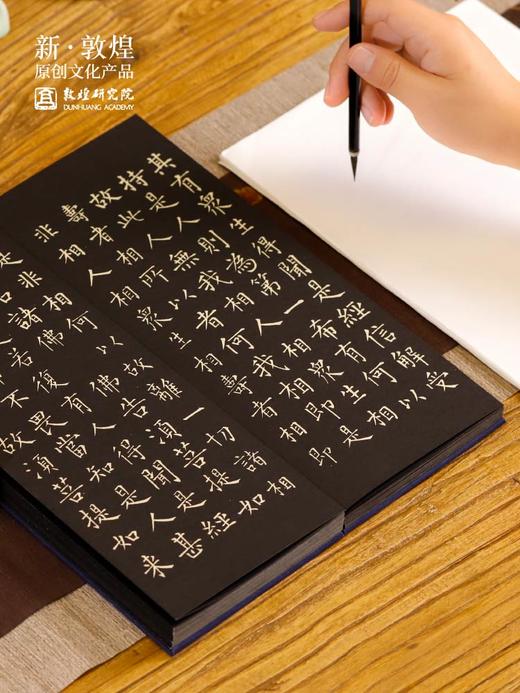 新·敦煌
原创文化产品
敦煌研究院
DUNHUANG ACADEMY
其有眾生得聞是經信解受
持是人則為第一希有何以
故此人無我相人相眾生相
壽者相所以者何我相即是
非相人相眾生相壽者相即
是非相何以故離一切諸相
名諸佛佛告須菩提如
若復有人得聞是經
不畏當知是人甚
故須菩提如來